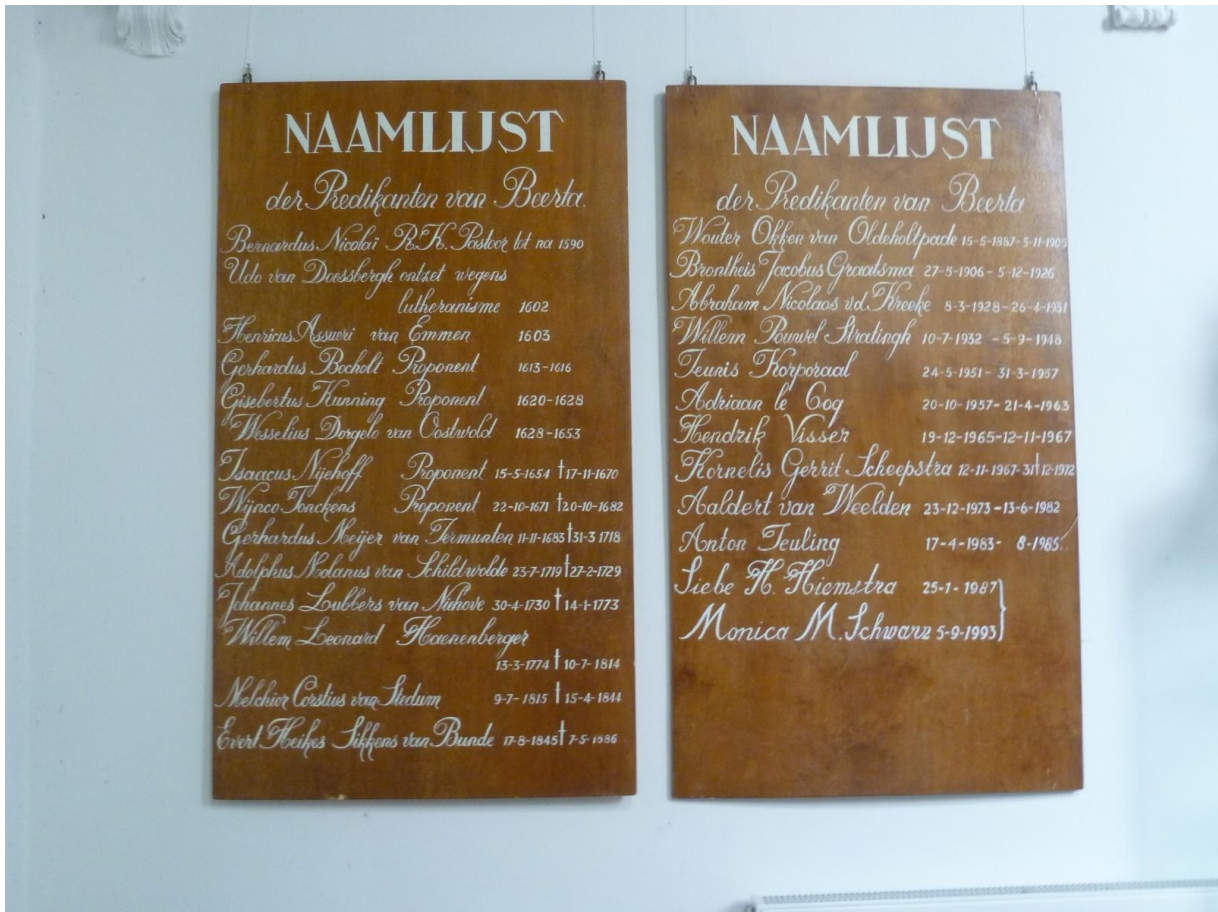 NAAMLIJST
der Predikanten van Beerta.
Bernardus Nicolaï R.K. Pastoor tot na 1590
Udo van Doessbergh ontzet wegens
lutheranisme 1602
Henricus Assueri van Emmen 1603
Gerhardus Bocholt Proponent 1613-1616
Gisebertus Kunning Proponent 1620-1628
Wesselius Dorgelo van Oostwold 1628-1653
Isaacus Nijehoff Proponent 15-5-1654 † 17-11-1670
Wijnco Tonckens Proponent 22-10-1671 † 20-10-1682
Gerhardus Meijer van Termunten 11-11-1683 † 31-3 1718
Adolphus Nolanus van Schildwolde 23-7-1719 † 27-2-1729
Johannes Loubbers van Niehove 30-4-1730 † 14-1-1773
Willem Leonard Haenenberger
13-3-1774 † 10-7-1814
Melchior Corstius van Stedum 9-7-1815 † 15-4-1844
Evert Heikes Sikkens van Bunde 17-8-1845 † 7-5-1886
NAAMLIJST
der Predikanten van Beerta
Wouter Okken van Oldeholtpade 15-5-1887-5-11-1905
Brontheis Jacobus Graatsma 27-5-1906-5-12-1926
Abraham Nicolaas v.d. Kreeke 8-3-1928-26-4-1931
Willem Pouwel Stratingh 10-7-1932 -5-9-1948
Teunis Korporaal 24-5-1951- 31-3-1957
Adriaan le Coq 20-10-1957-21-4-1963
Hendrik Visser 19-12-1965-12-11-1967
Kornelis Gerrit Scheepstra 12-11-1967-31†12-1972
Aaldert van Weelden 23-12-1973-13-6-1982
Anton Teuling 17-4-1983- 8-1985.
Siebe H. Hiemstra 25-1-1987
Monica M. Schwarz 5-9-1993